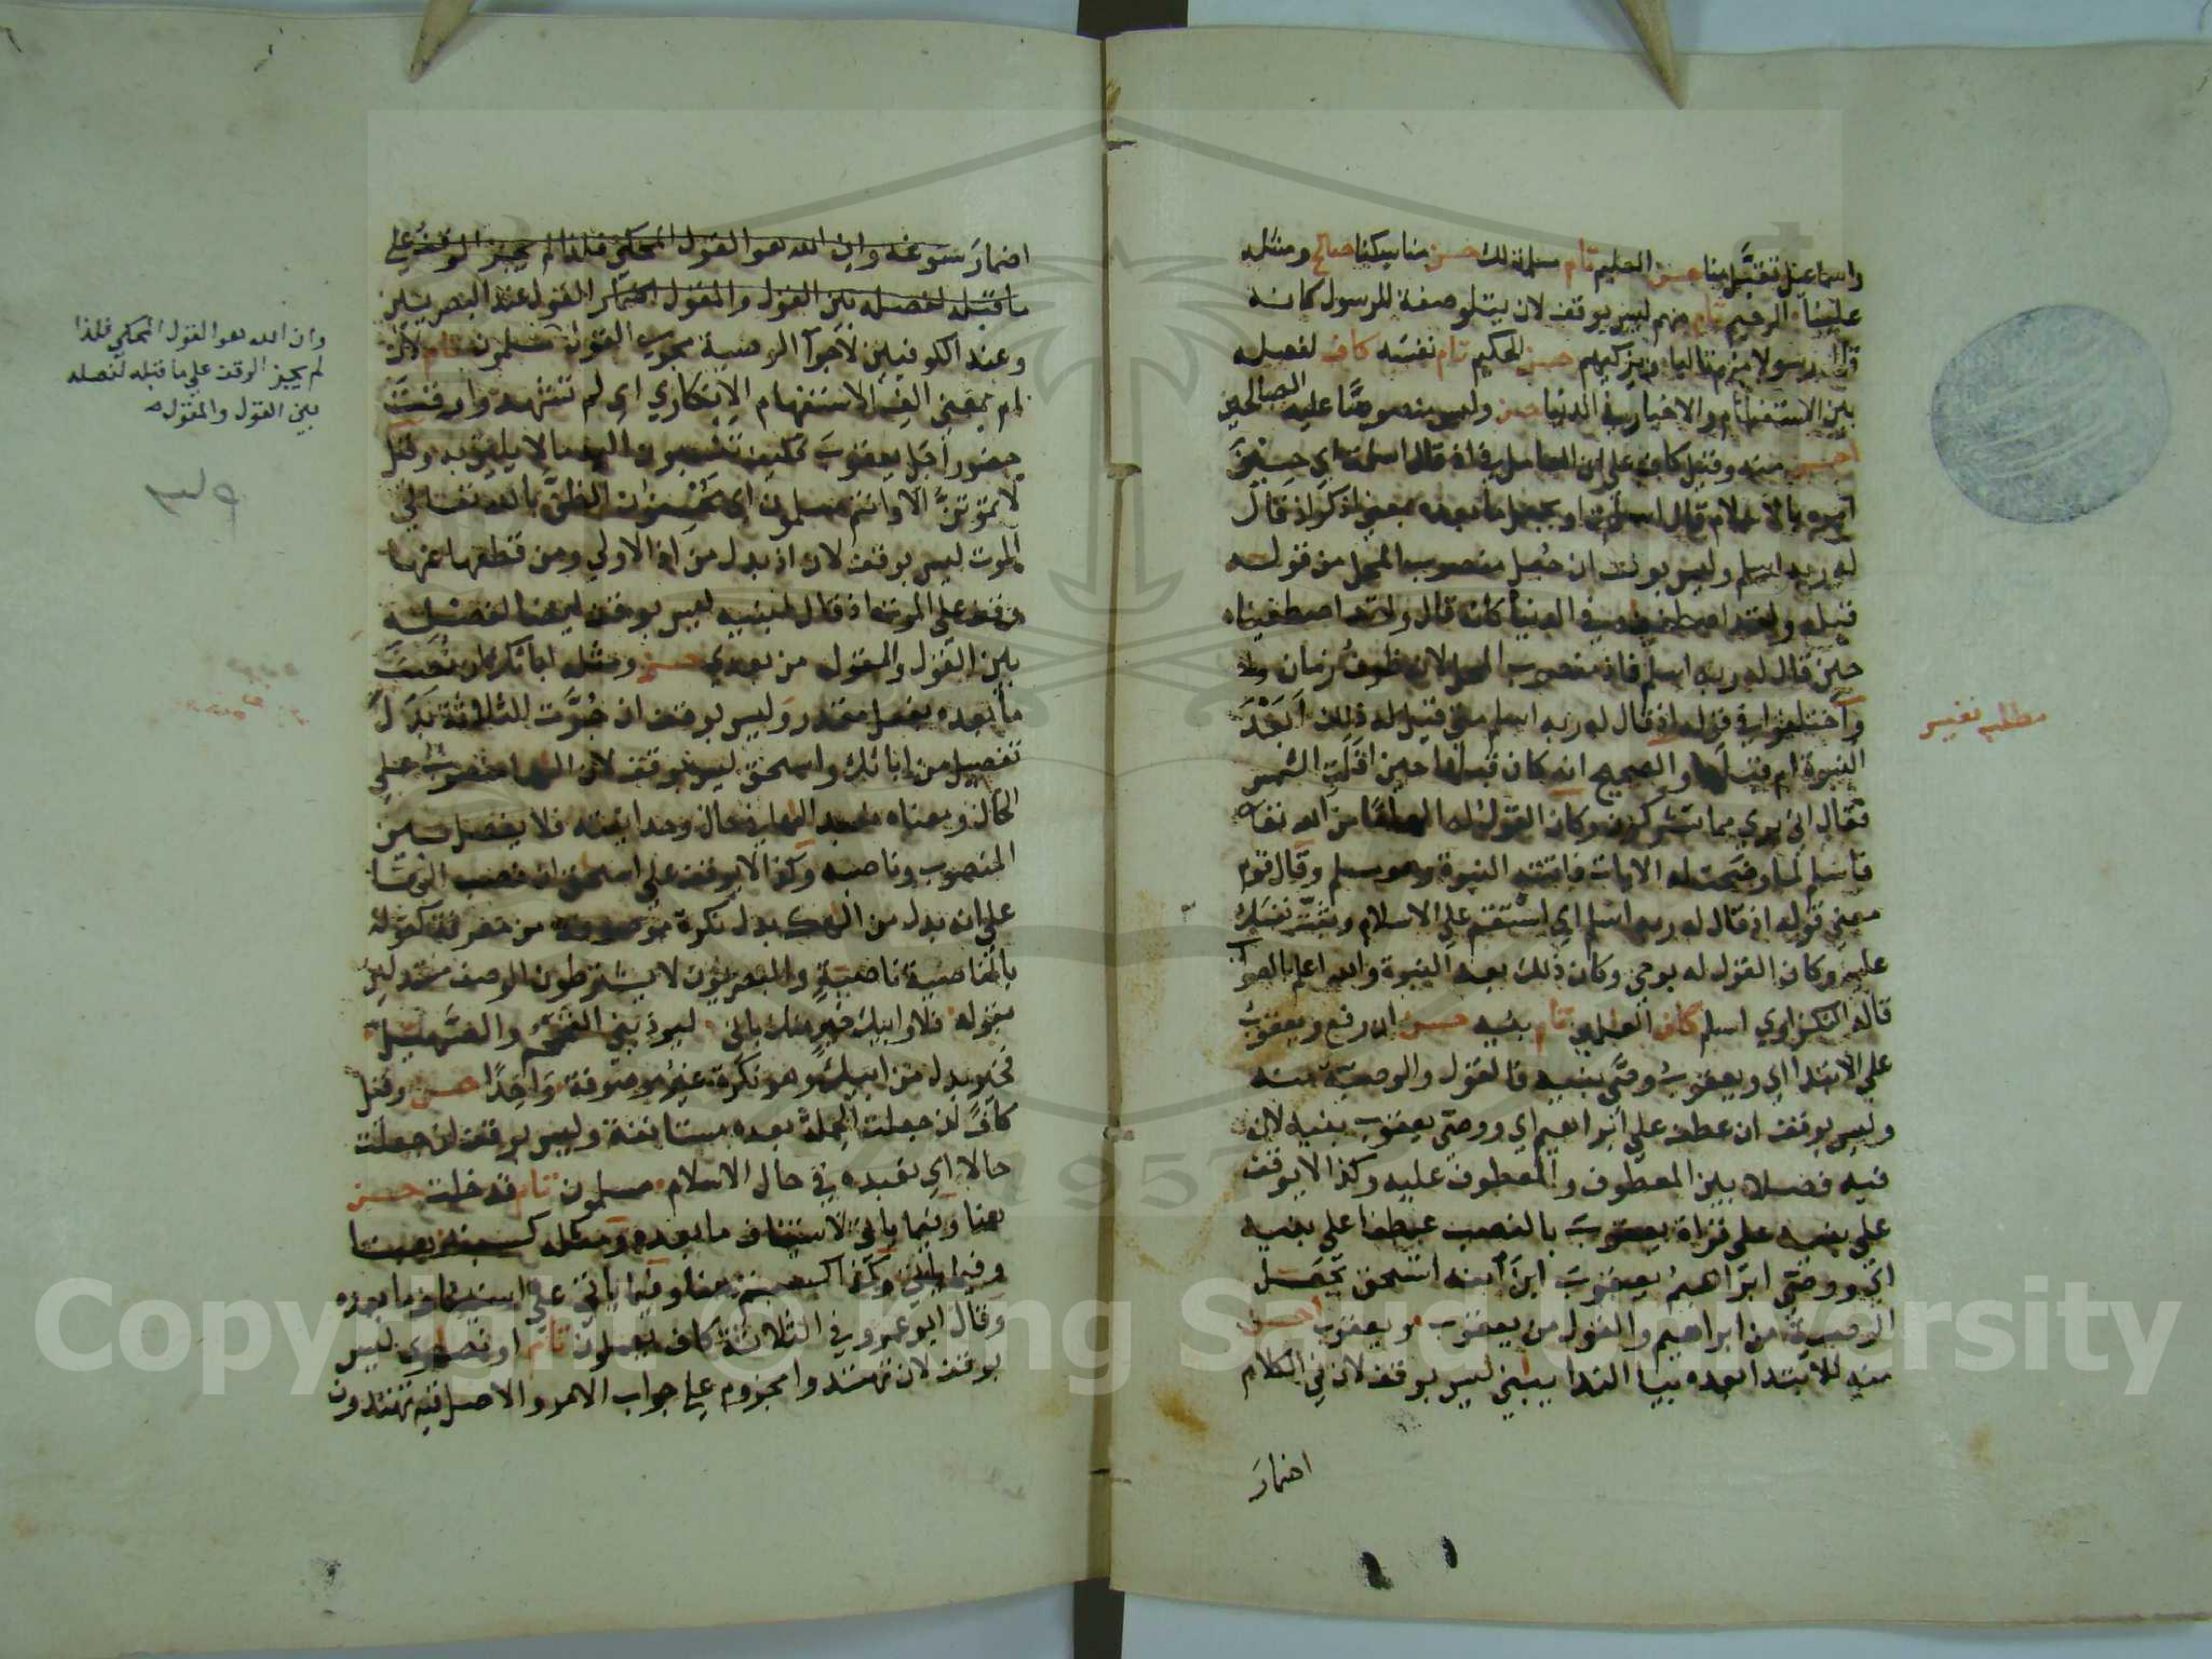 واسماعيل تقبل منا حسن العليم تام مسلمة لك حسن مناسكنا صالح ومثله
علينا الرحيم تام منهم ليس بوقف لان يتلو صفة للرسول كانه
قال رسولا منهم تاليا ويزكيهم حسن الحكيم تام نفسه كاف لفصله
بين الاستفهام والاخبار في الدنيا حسن وليس منصوصا عليه الصالحين
احسن منه وقيل كاف على ان العامل في اذ قال اسلمت اي حين
امره بالاسلام قال اسلمت او يجعل ما بعده بمعنى اذكر اذ قال
له ربه اسلم وليس بوقف ان جعل منصوب المحل من قوله
قبله ولقد اصطفيناه في الدنيا كانه قال ولقد اصطفيناه
حين قال له ربه اسلم فاذ منصوب المحل لانه ظرف زمان
واختلفوا في قوله اذ قال له ربه اسلم متى قيل له ذلك ابعد
النبوة ام قبلها والصحيح انه كان قبلها حين افلت الشمس
فقال اني بري مما تشركون وكان القول له الهاما من الله تعالى
فاسلم لما وضحت له الايات فاتته النبوة وهو مسلم وقال قوم
معنى قوله اذ قال له ربه اسلم اي استقم على الاسلام وثبت نفسك
عليه وكان القول له بوحي وكان ذلك بعد النبوة والله اعلم بالصواب
قاله النكزاوي اسلم كاف العالمين تام بنيه حسن ان رفع ويعقوب
على الابتدا اي ويعقوب وصى بنيه فالقول والوصية منه
وليس بوقف ان عطف على ابراهيم اي ووصى يعقوب بنيه لان
فيه فصلا بين المعطوف والمعطوف عليه وكذا لا يوقف
على بنيه على قراة يعقوب بالنصب عطفا على بنيه
اي ووصى ابراهيم يعقوب ابن ابنه اسحق تجعل
الوصية من ابراهيم والقول من يعقوب ويعقوب احسن
منه للابتدا بعده بيا الندا يبني ليس بوقف لان في الكلام
اضمار
مطلب نفيس
اضمار سوغه وان الله هو القول المحكي فلذا لم يجيز الوقف على
ما قبله لفصله بين القول والمقول اضمار القول عند البصريين
وعند الكوفيين لاجرا الوصية مجرى القول مسلمون تام لان
ام بمعنى الف الاستفهام الانكاري اي لم تشهدوا وقت
حضور اجل يعقوب فكيف تنسبون اليه ما لا يليق به وقيل
لا تموتن الا وانتم مسلمون اي محسنون الظن بالله تعالى
الموت ليس بوقف لان اذ بدل من اذ الاولى ومن قطعها عنها
وقف على الموت اذ قال لبنيه ليس بوقف ايضا لفصله
بين القول والمقول من بعدي حسن ومثله ابائك ان نصبت
ما بعده بفعل مقدر وليس بوقف ان جرت الثلاثة بدل
تفصيل من ابائك واسحق ليس بوقف لان الها منصوب على
الحال ومعناه نعبد الها في حال وحدانيته فلا يفصل بين
المنصوب وناصبه وكذا لا يوقف على اسحق ان نصب الها
على انه بدل من الهك بدل نكرة موصوفة من معرفة كقوله
بالناصية ناصية والبصريون لا يشترطون الوصف مستدلين
بقوله فلا وابيك خير منك اني ليوذيني التحمحم والصهيل
فخير بدل من ابيك وهو نكرة غير موصوفة واحدا حسن وقيل
كاف ان جعلت الجملة بعده مستانفة وليس بوقف ان جعلت
حالا اي نعبده في حال الاسلام مسلمون تام قد خلت حسن
هنا وفيما ياتي لاستئناف ما بعده ومثله كسبت هنا
وفيما ياتي وكذا كسبتم هنا وفيما ياتي على استئناف ما بعده
وقال ابو عمرو في الثلاثة كاف يعملون تام او نصارى ليس
بوقف لان تهتدوا مجزوم على جواب الامر والاصل فيه تهتدون
وان الله هو القول المحكي فلذا
لم يجيز الوقف على ما قبله لفصله
بين القول والمقول
Copyright © King Saud University
1957